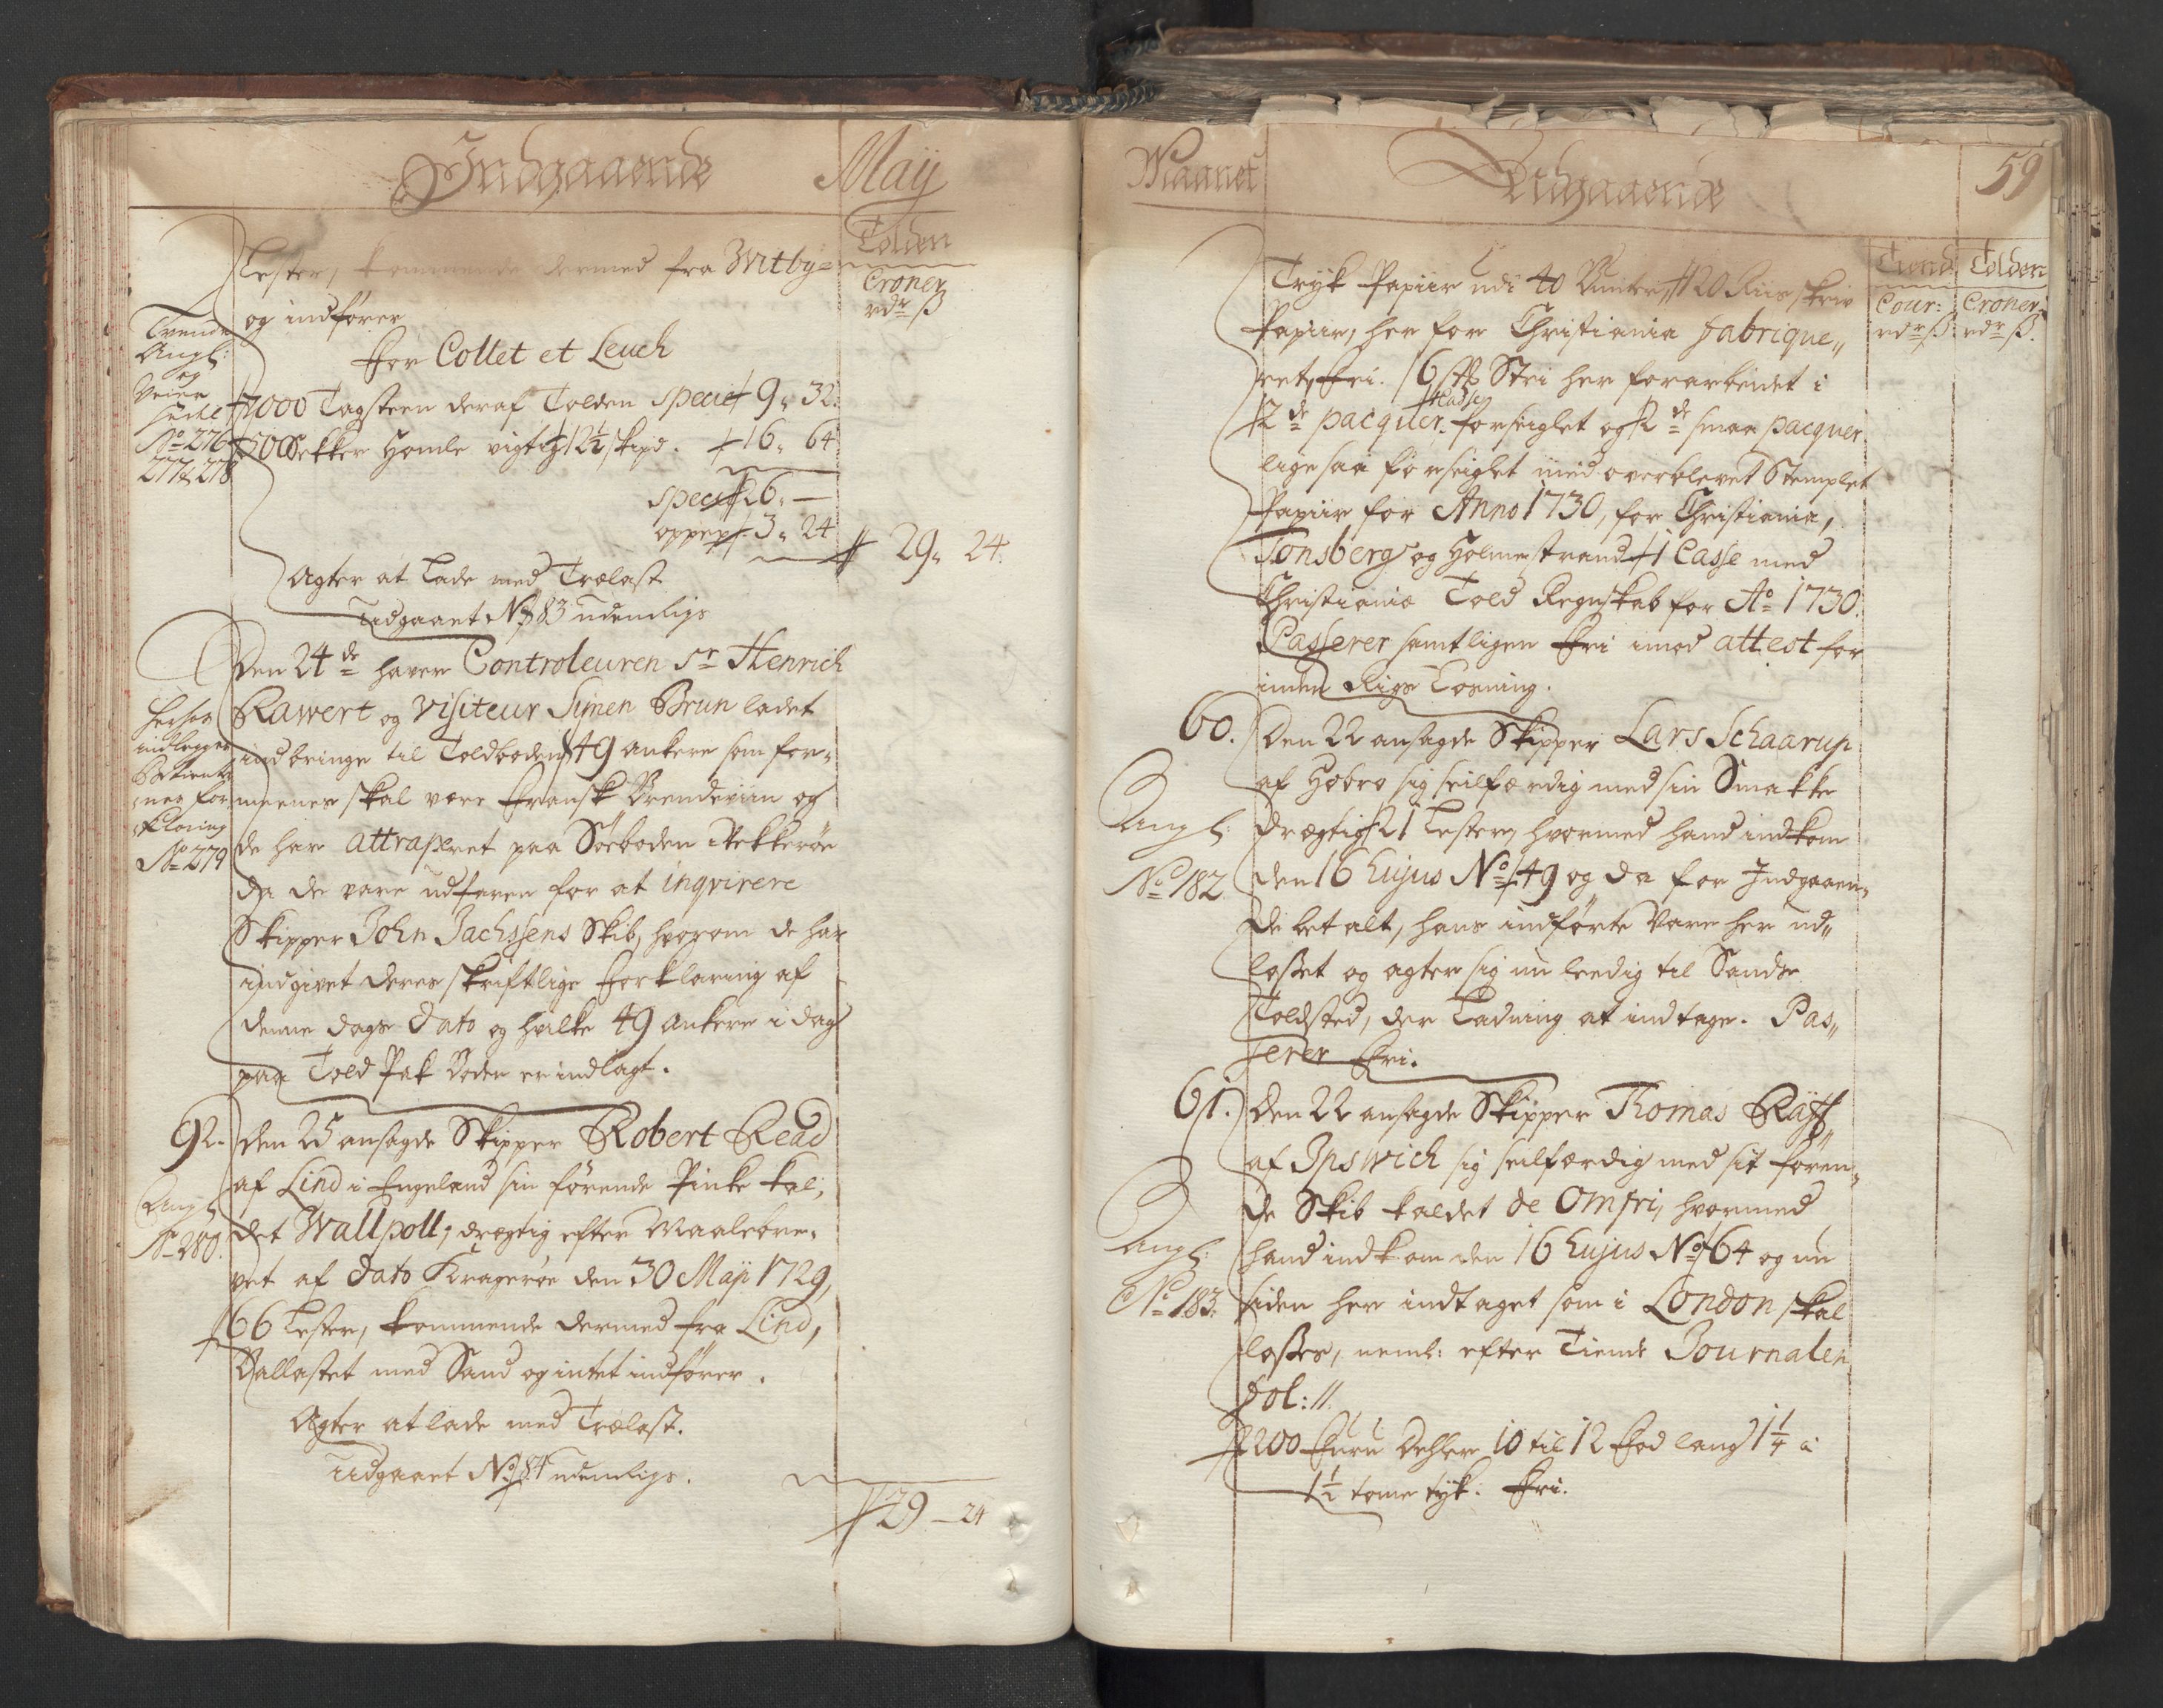 Indgaaende Maÿ
Tolden
Croner
rdr ß
Lester, kommende dermed fra Witbye
og indfører
Tvende
Angl:
og
Veier
Sedel
No 276
277 & 278
For Collet et Leuch
7000 Tagsteen deraf Tolden specie 9„ 32
50 Sekker Homle vigtig 12½ skipd. 16„ 64
specie 26„ —
oppep 3„ 24
29„ 24.
Agter at lade med Trælast
Udgaaet No 83 udenligs
Den 24de haver Controleuren Sr Henrich
Rawert og Visiteur Simen Brun ladet
indbringe til Toldboden 49 ankere som for-
meenes skal være Fransk Brendeviin og
de har attraperet paa Søeboden i Rekkerøe
da de vare udfaren for at inqvirere
Skipper John Jachssens Skib, hvorom de har
indgivet deres skriftlige Forklaring af
denne dags dato og hvilke 49 Ankere i dag
paa Told Pak Boden er indlagt.
Herhos
indlegges
Betient-
nes for-
klaring
No 279
92. Den 25 ansagde Skipper Robert Read
af Lind i Engeland sin førende Pinke kal-
det Wallpoll, drægtig efter Maalebre-
vet af dato Kragerøe den 30 Maÿ 1729,
66 Lester, kommende dermed fra Lind,
Ballastet med Sand og intet indfører.
Angl
No 280.
Agter at lade med Trælast.
Udgaaet No 84 udenligs.
29 – 24
Maanet Udgaaende 59
Tiend Tolden
Cour: Croner
rdr ß rdr ß.
Tryk Papiir udi 40 Bunter, 20 Riis skriv
Papiir, her for Christiania Fabrique„
ret, fri. 6 Stri her forarbeidet i
2de pacquer forseiglet og 2de smaa pacquer
ligesaa forseiglet med overblevet Stemplet
Papiir for Anno 1730, for Christiania,
Tonsberg og Holmestrand 1 Casse med
Christiania Told Regnskab for Ao 1730.
Passerer samtligen Fri imod attest for
inden Rigs Losning.
60. Den 22 ansagde Skipper Lars Schaarup
af Hobro sig seilfærdig med sin Smakke
drægtig 21 Lester, hvormed hand indkom
den 16 hujus No 49 og da for Indgaaen-
de betalt, hans indførte Vare her ud„
losset og agter sig nu leedig til Sands
Toldsted, der Ladning at indtage. Pas„
serer Fri.
Angl:
No 182
61. Den 22 ansagde Skipper Thomas Raÿff
af Ipswich sig seilfærdig med sit føren-
de Skib kaldet de Omfri, hvormed
hand indkom den 16 hujus No 64 og nu
siden her indtaget som i London skal
losses, neml: efter Tiende Journalen
fol: 11.
Angl:
No 183.
200 Furu Dehler 10 til 12 Fod lang 1¼ à
1½ tome tyk. Fri.